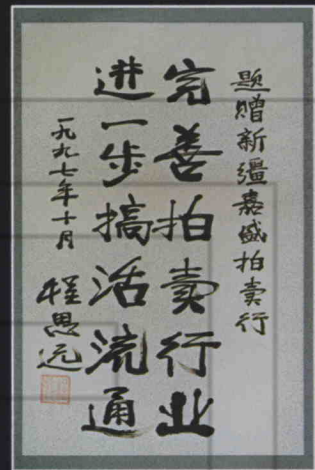 题赠新疆嘉盛拍卖行
完善拍卖行业
进一步搞活流通
一九九七年十月
程思远